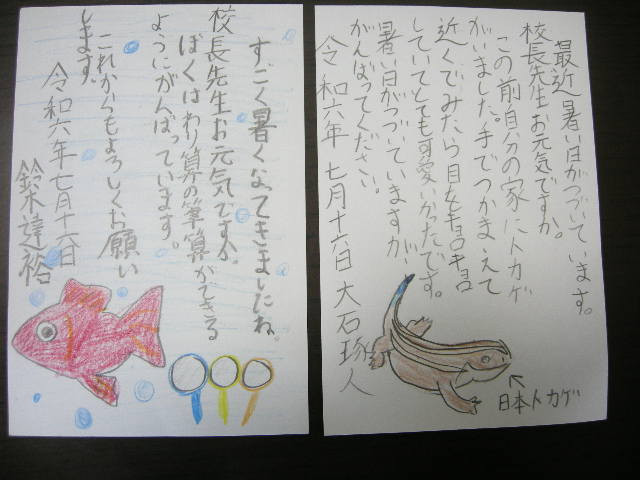 最近暑い日がつづいています。
校長先生お元気ですか。
この前自分の家にトカゲ
がいました。手でつかまえて
近くでみたら目をキョロキョロ
していてとても可愛いかったです。
暑い日がつづいていますが、
がんばってください。
令和六年 七月十六日 大石琢人
日本トカゲ
すごく暑くなってきましたね。
校長先生お元気ですか。
ぼくはわり算の筆算ができる
ようにがんばっています。
これからもよろしくお願い
します。
令和六年七月十六日
鈴木達裕